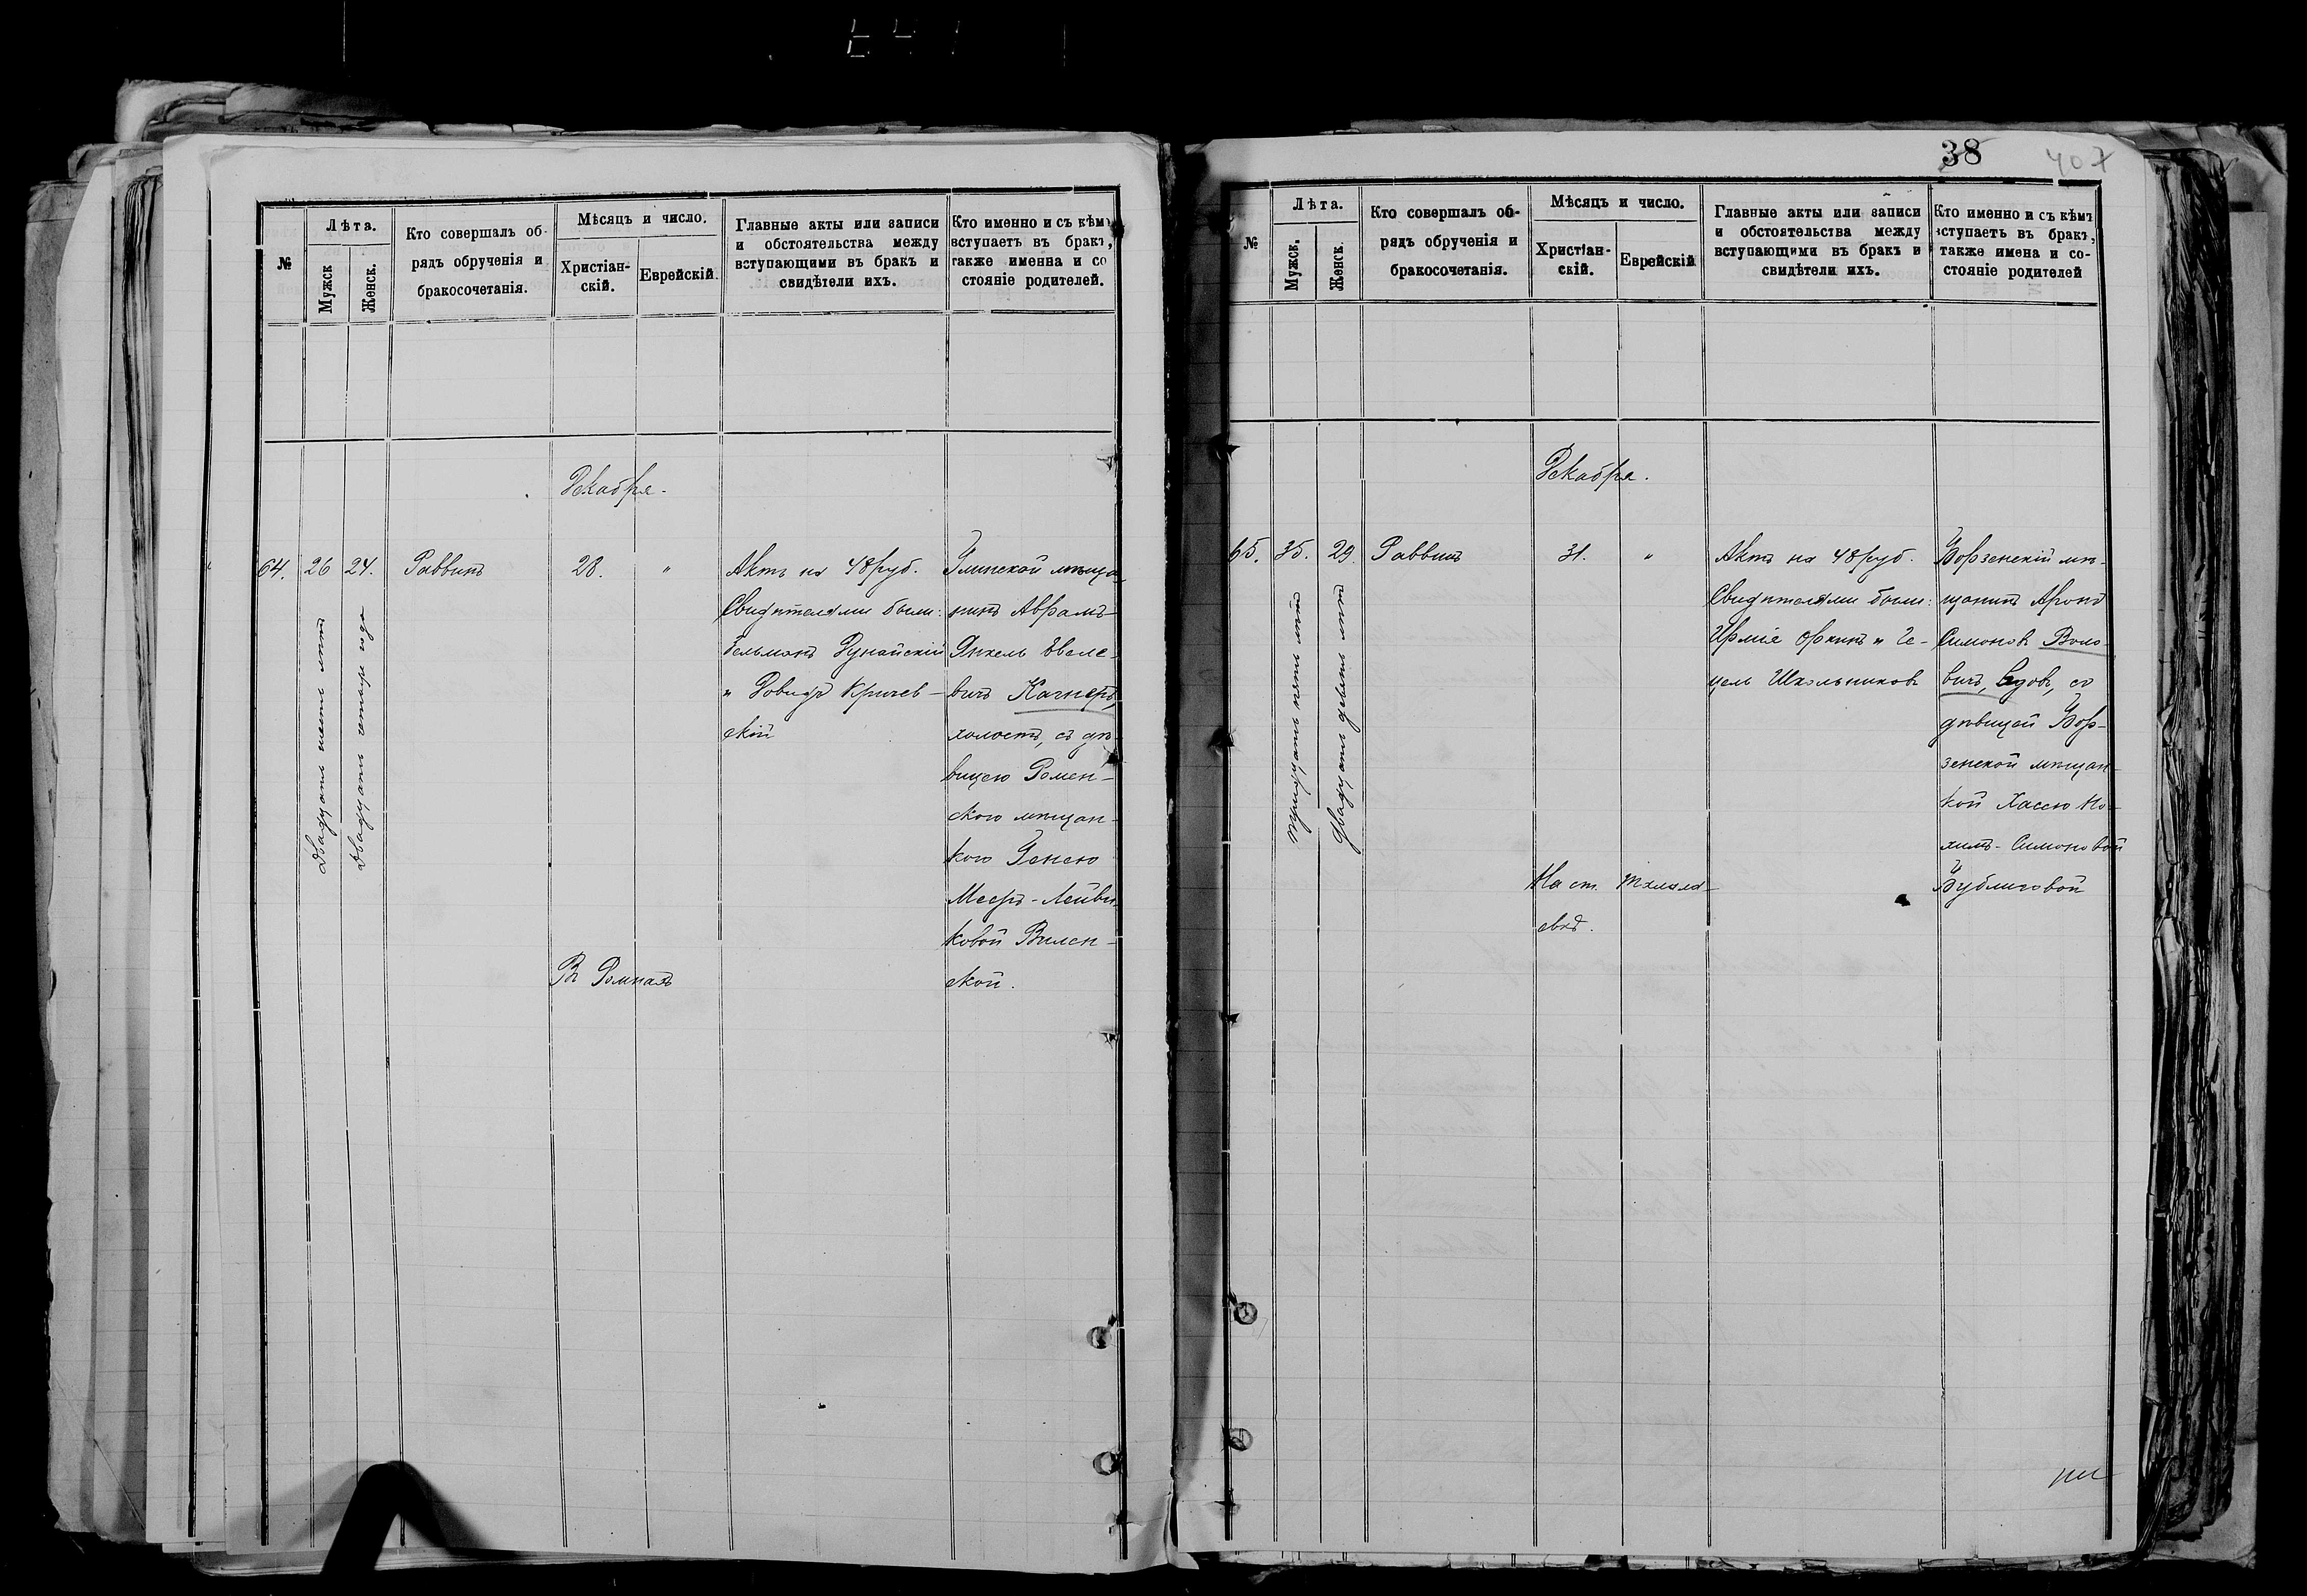 №
Лѣта.
Мужск
Женск.
Кто совершалъ об-
рядъ обрученія и
бракосочетанія.
Мѣсяцъ и число.
Христіан-
скій.
Еврейскій.
Главные акты или записи
и обстоятельства между
вступающими въ бракъ и
свидѣтели ихъ.
Кто именно и съ кѣмъ
вступаетъ въ бракъ,
также именна и со
стояніе родителей.
Декабря.
64.
26
24.
Двадцать шесть лѣтъ
Двадцать четыре года
Раввинъ
28.
"
Актъ на 48 руб.
Свидѣтелями были:
Зельманъ Дунайскій
и Довидъ Кричев-
скій
Глинской мѣща-
нинъ Абрамъ-
Янкель
вичъ
холостъ, съ дѣ-
вицею Ромен-
ского мѣщан-
кою Генею
Мееръ-Лейви-
ковой Вилен-
ской.
Въ Ромнахъ
38
407
№
Лѣта.
Мужск.
Женск.
Кто совершалъ об-
рядъ обрученія и
бракосочетанія.
Мѣсяцъ и число.
Христіан-
скій.
Еврейскій
Главные акты или записи
и обстоятельства между
вступающими въ бракъ и
свидѣтели ихъ.
Кто именно и съ кѣмъ
вступаетъ въ бракъ,
также имена и со-
стояніе родителей
Декабря.
65.
35.
29.
Тридцать пять лѣтъ
Двадцать девять лѣтъ
Раввинъ
31.
"
Актъ на 48 руб.
Свидѣтелями были:
и Ге-
цель Школьниковъ
Борзенскій мѣ-
щанинъ Аронъ
Симоновъ Воло-
вичъ, вдовъ, съ
дѣвицей Бор-
зенской мѣщан-
кой Хассею Но-
химъ-Симоновой
Бубликовой
На ст.